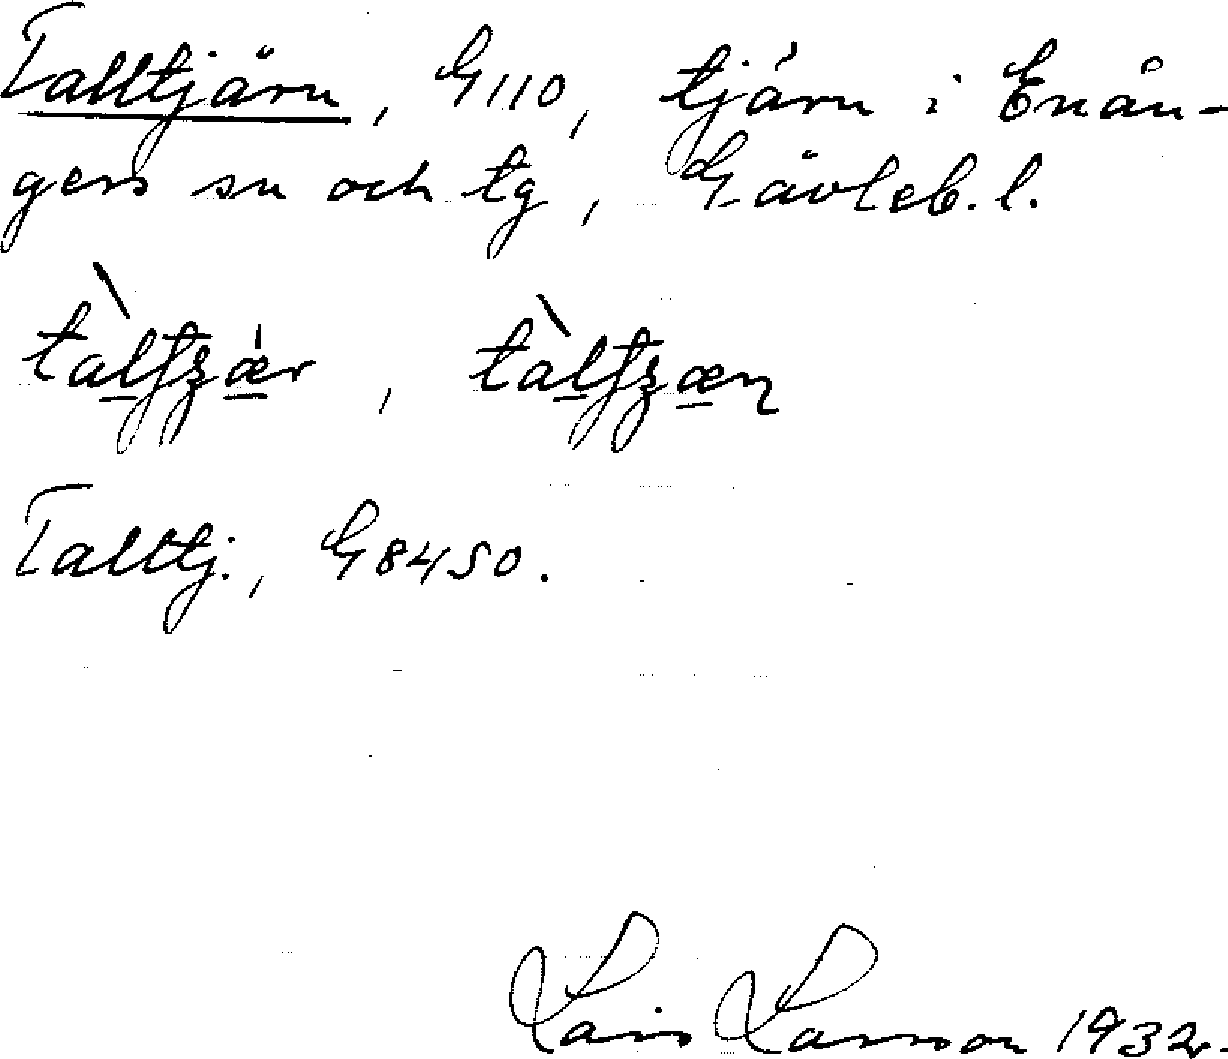 Talltjärn, G110, tjärn i Enån-
gers sn och tg, Gävleb. l.
Talltj., G8450.
Lars Larsson 1932.